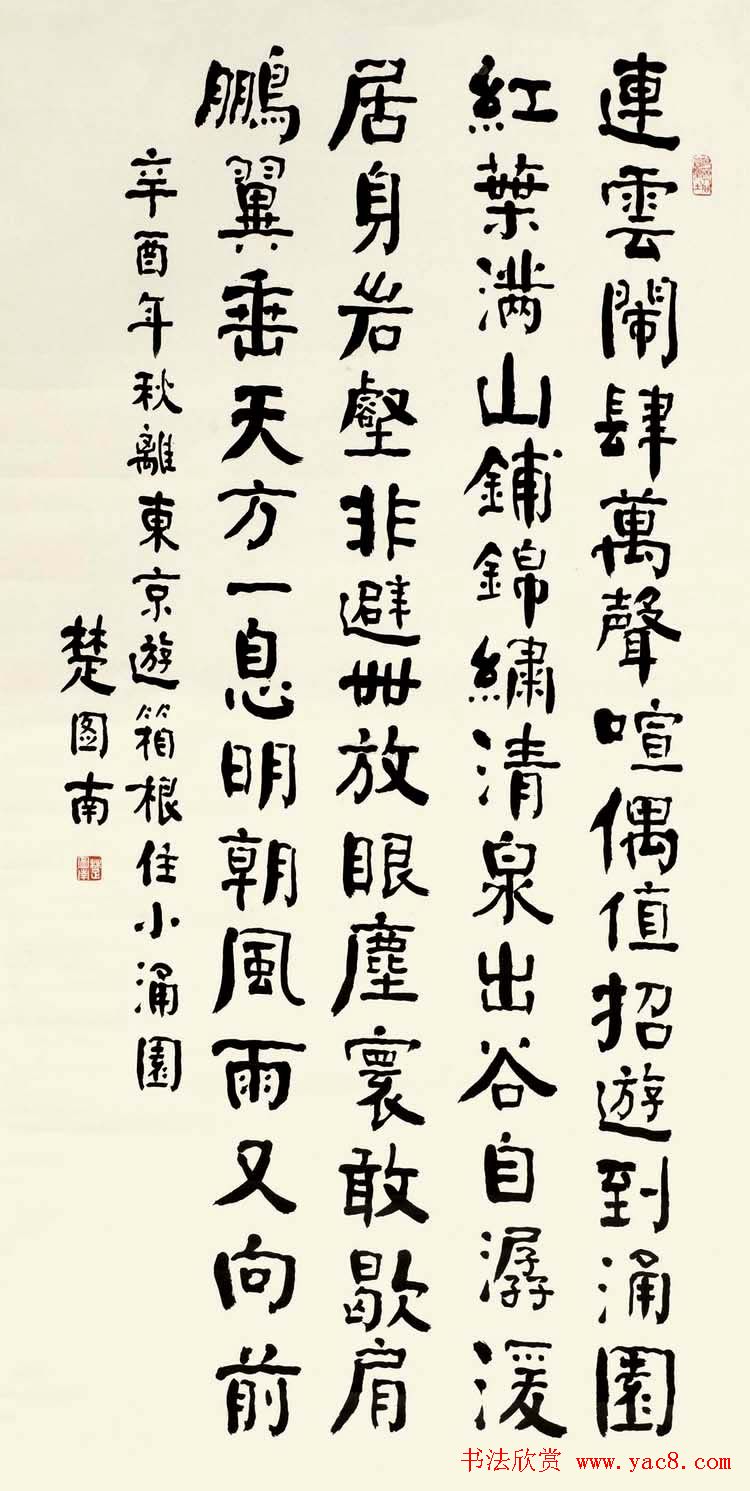 連雲鬧肆萬聲喧偶值招遊到涌園
紅葉满山鋪錦繡清泉出谷自潺湲
居身岩壑非避世放眼塵寰敢歇肩
鵬翼垂天方一息明朝風雨又向前
辛酉年秋離東京遊箱根住小涌園
楚图南
书法欣赏 www.yac8.com